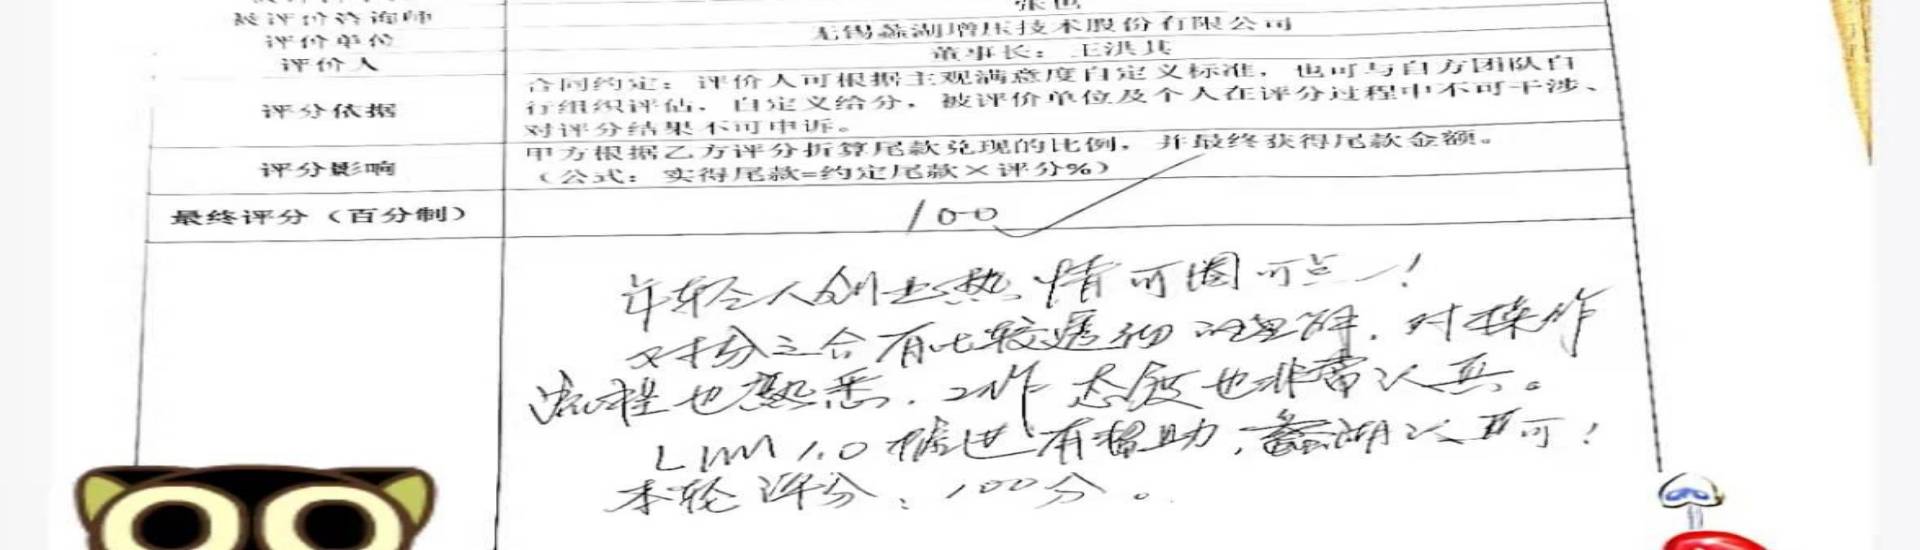 被评价咨询师
无锡蠡湖增压技术股份有限公司
评价单位
董事长：王洪其
评价人
合同约定：评价人可根据主观满意度自定义标准，也可与自方团队自
评分依据
行组织评估，自定义给分，被评价单位及个人在评分过程中不可干涉、
对评分结果不可申诉。
甲方根据乙方评分折算尾款兑现的比例，并最终获得尾款金额。
评分影响
（公式：实得尾款=约定尾款×评分%）
最终评分（百分制）
100
年轻人创业热情可圈可点！
对分之合有比较透彻的理解，对操作
流程也熟悉，工作态度也非常认真。
1.0推进有帮助，蠡湖认可！
本轮评分：100分。